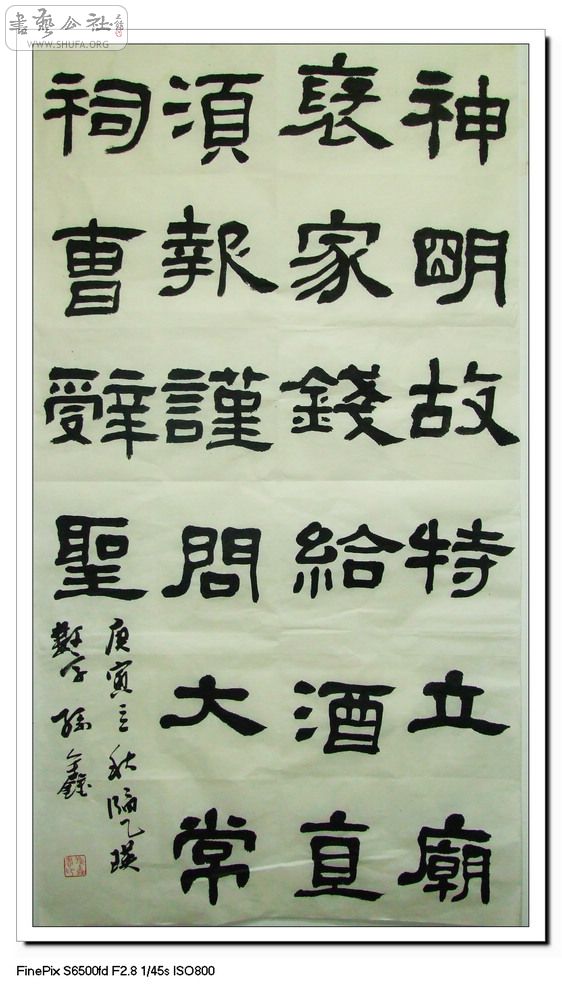 書藝公社
WWW.SHUFA.ORG
神明故特立廟
褒家錢給酒直
須報謹問大常
祠曹辭聖
庚寅之秋臨乙瑛
數字孫鑫
FinePix S6500fd F2.8 1/45s ISO800